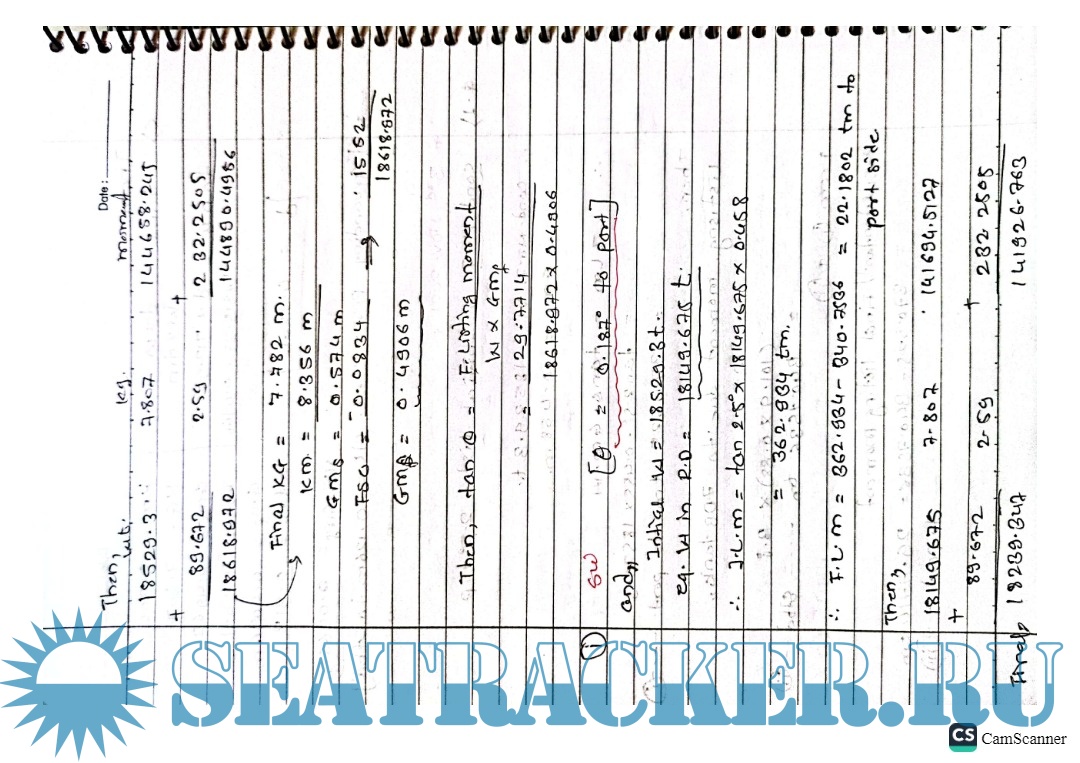 Date:
Then,
wt. kg. moment
18529.3 7.807 144658.245
+ 89.672 2.59 + 232.2505
18618.972 144890.4956
Final KG = 7.782 m.
KM = 8.356 m
GMs = 0.574 m
FSC = - 0.0834 → 1552
18618.972
GMf = 0.4906 m
Then, tan θ = F. Listing moment
W x GMf
= 29.7714
18618.972 x 0.4906
SW [θ = 0.187° to port]
(i)
and,,
Initial W = 18529.3 t.
eq. W in R.D = 18149.675 t.
∴ I.L.M = tan 2.5° x 18149.675 x 0.458
= 362.934 tm.
∴ F.L.M = 362.934 - 340.7536 = 22.1802 tm to
port side
Then,
18149.675 7.807 141694.5127
+ 89.672 2.59 + 232.2505
Final 18239.347 141926.763
SEATRACKER.RU
CS CamScanner